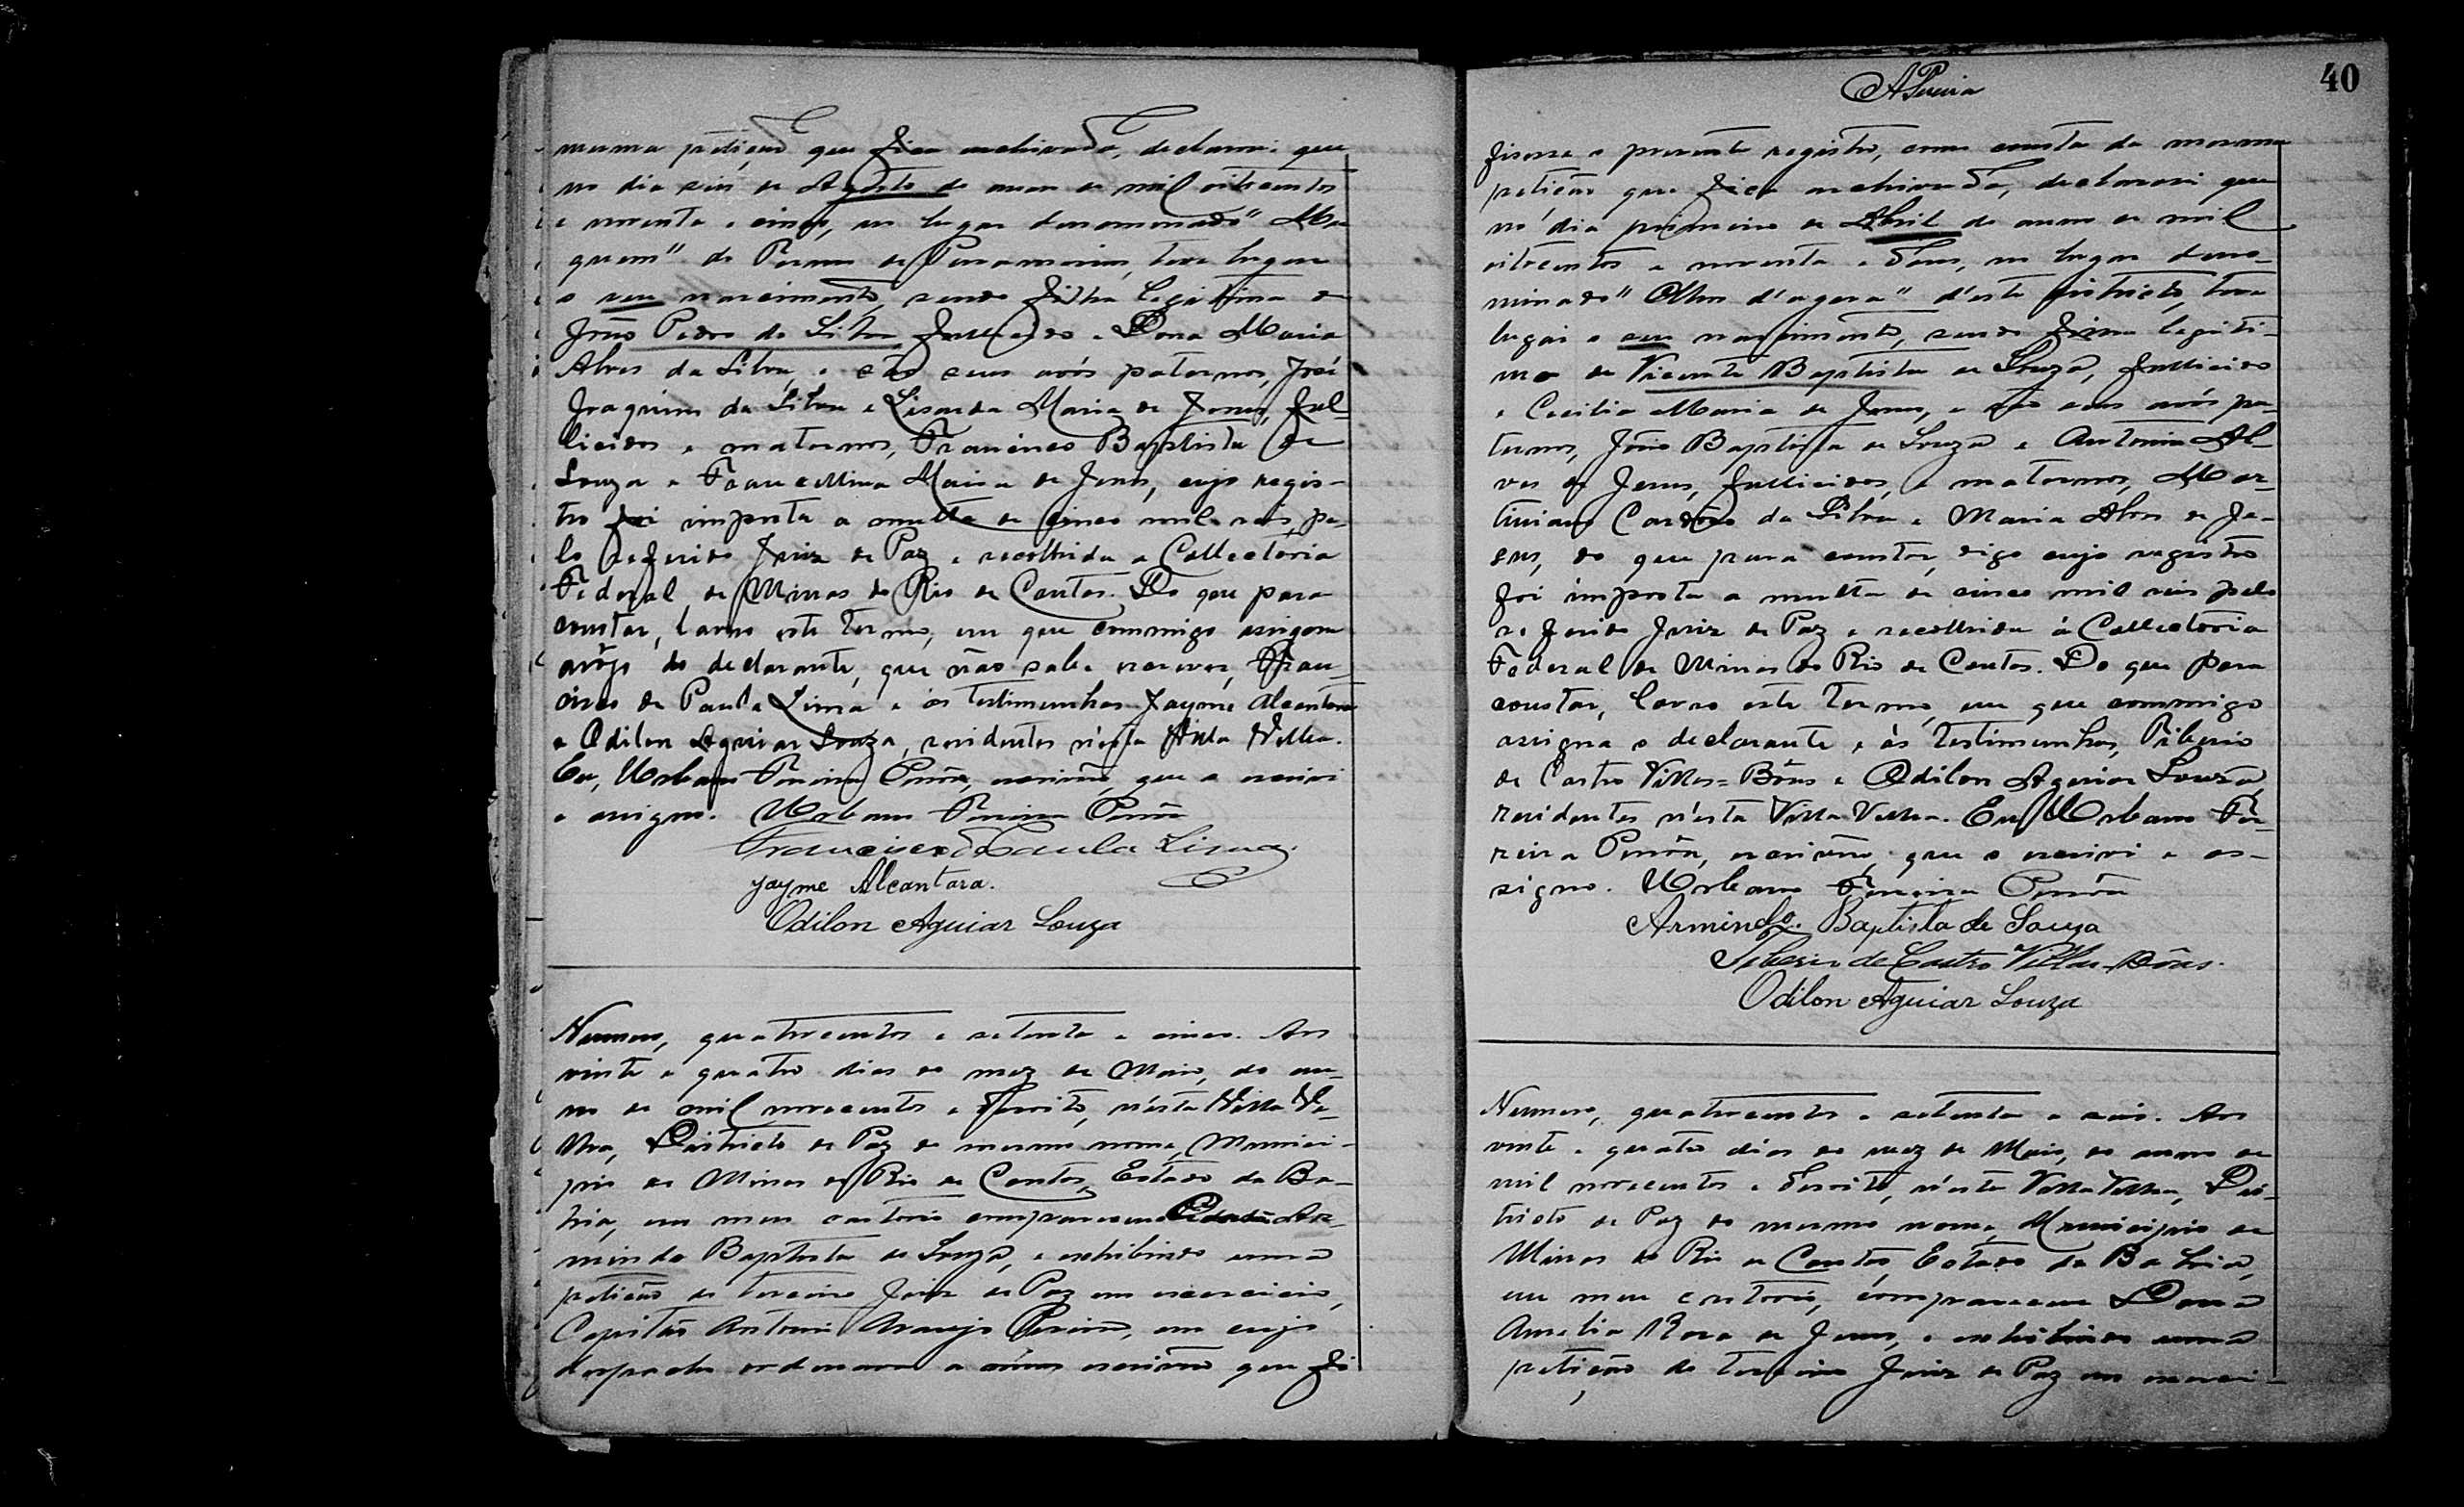 mesma petição que fica archivada, declarou que
no dia seis de Agosto do anno de mil oitocentos
e noventa e cinco, no lugar denominado "Ma
quem" do Termo de Paramirim, teve lugar
o seu nascimento, sendo filha legitima de
João Pedro da Silva, fallecido e Dona Maria
Alves da Silva, e são seus avós paternos, José
Joaquim da Silva e Lisarda Maria de Jesus, fal-
lecidos e maternos, Francisco Baptista de
Souza e Francellina Maria de Jesus, cujo regis-
tro foi imposta a multa de cinco mil reis, pe-
lo referido Juiz de Paz e recolhida a Collectoria
Federal de Minas do Rio de Contas. Do que para
constar, lavro este termo, em que commigo assigna
arôgo do declarante, que não sabe escrever, Fran-
cisco de Paula Lima e ás testimunhas Jayme Alcantara
e Odilon Aguiar Souza, residentes n'esta Villa Velha.
Eu, Urbano Ferreira, escrivão, que o escrevi
e assigno. Urbano Ferreira
Francisco de Paula Lima.
Jayme Alcantara.
Odilon Aguiar Souza
Numero, quatrocentos e setenta e cinco. Aos
vinte e quatro dias do mez de Maio, do an-
no de mil novecentos e desoito, n'esta Villa Ve-
lha, Districto de Paz do mesmo nome, Munici-
pio de Minas do Rio de Contas, Estado da Ba-
hia, em meu cartorio compareceu Ar-
mindo Baptista de Souza, e exhibindo uma
petição do terceiro Juiz de Paz em exercicio,
Capitão Antonio Araujo Pereira, em cujo
despacho ordenava a mim escrivão que fi
40
APereira
zesse o presente registro, como consta da mesma
petição que fica archivada, declarou que
no dia primeiro de Abril do anno de mil
oitocentos e noventa e dous, no lugar deno-
minado "Olhos d'agua" d'este districto, teve
lugar o seu nascimento, sendo filho legiti-
mo de Vicente Baptista de Souza, fallecido
e Cecilia Maria de Jesus, e são seus avós pa-
ternos, João Baptista de Souza e Antonia Al-
ves de Jesus, fallecidos, e maternos, Mar-
tiniano Cardôso da Silva e Maria Alves de Je-
sus, do que para constar, digo cujo registro
foi imposta a multa de cinco mil reis pelo
referido Juiz de Paz e recolhida á Collectoria
Federal de Minas do Rio de Contas. Do que para
constar, lavro este termo, em que commigo
assigna o declarante e ás testimunhas, Tiberio
de Castro Villas-Bôas e Odilon Aguiar Souza,
residentes n'esta Villa Velha. Eu, Urbano Fer-
reira, escrivão, que o escrevi e as-
signo. Urbano Ferreira
Armindo Baptista de Souza
Tiberio de Castro Villas-Bôas.
Odilon Aguiar Souza
Numero, quatrocentos e setenta e seis. Aos
vinte e quatro dias do mez de Maio, do anno de
mil novecentos e desoito, n'esta Villa Velha, Dis-
tricto de Paz do mesmo nome, Municipio de
Minas do Rio de Contas, Estado da Bahia,
em meu cartorio, compareceu Dona
Amelia Rosa de Jesus, e exhibindo uma
petição do terceiro Juiz de Paz em exerci-